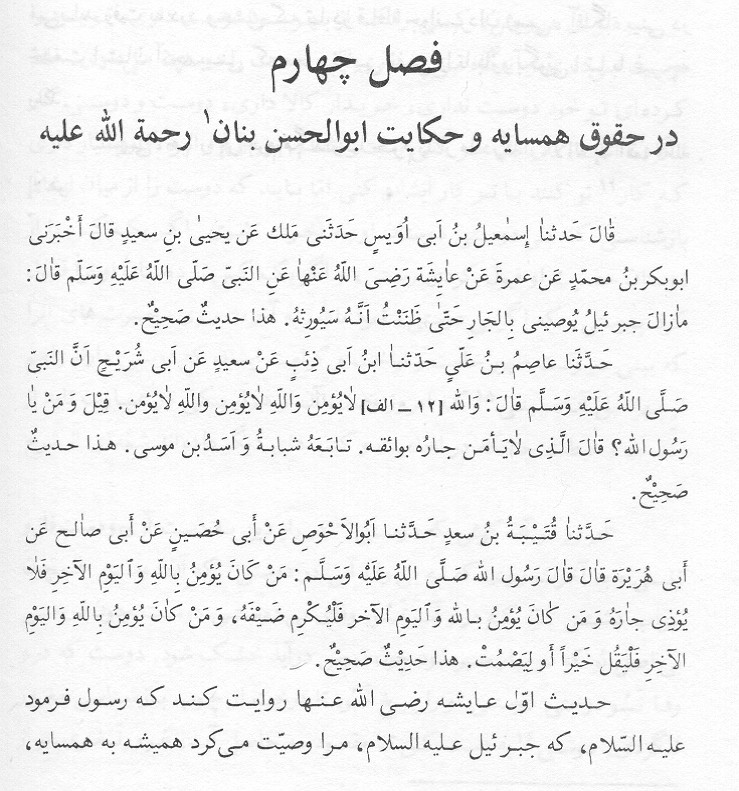 فصل چهارم
در حقوق همسایه و حکایت ابوالحسن بنان۱ رحمة الله علیه
قٰالَ حَدثنٰا إسمٰعیلُ بنُ اَبی اُوَیسٍ حَدثَنی مٰلك عَن یحییٰ بنِ سعیدٍ قالَ أخْبَرَنی
ابوبکربنُ محمّدٍ عَن عمرةَ عَنْ عٰایِشَة رَضِیَ اللّهُ عَنْهٰا عَنِ النَبیّ صَلّی اللّهُ عَلَیْهِ وَسَلّم قٰالَ:
مٰازالَ جبرئیلُ یُوصینی بِالجَارِ حَتّٰی ظَنَنْتُ اَنَّهُ سَیُورثِهُ. هذا حدیثٌ صَحِیْحٌ.
حَدَّثَنا عاصِمُ بنُ عَلَیٍ حَدّثنا ابنُ اَبی ذِئبٍ عَنْ سعیدٍ عَن اَبی شُرَیْحٍ اَنَّ النَبیّ
صَلَّی اللّهُ عَلَیْهِ وَسَلَّم قٰالَ: وَالله [۱۲ ــ الف] لٰایُؤمِن وَاللّهِ لٰایُؤمِن واللّهِ لٰایُؤمن. قِیْلَ وَ مَنْ یٰا
رَسُول الله؟ قٰالَ الَّذِی لٰایَأمَن جارُه بوائقه. تـابَعَهُ شبابةُ وَ اَسَدُبن موسی. هـذا حدیثٌ
صَحِیْحٌ.
حَدَّثنٰا قُتَیْبَةُ بنُ سعدٍ حَدَّثنا اَبُوالاَحْوَصِ عَنْ أبی حُصَینٍ عَنْ أبی صالحٍ عَن
أبی هُرَیْرَة قٰالَ قٰالَ رَسُول الله صَلَّی اللّهُ عَلَیْهِ وَسَلَّم: مَنْ کٰانَ یُؤمِنُ بِاللّهِ وَاَلیَومِ الآخِرِ فَلٰا
یُؤذِی جارَهُ وَ مَن کٰانَ یُؤمِنُ بالله وَاَلیَومِ الآخر فَلْیُکْرِم ضَیْفَهُ، وَ مَنْ کٰانَ یُؤمِنُ بِاللّهِ وَالیَومِ
الآخِرِ فَلْیَقُل خَیْراً أَو لِیَصْمُتْ. هذا حَدِیْثٌ صَحِیْحٌ.
حدیث اوّل عایشه رضی الله عنها روایت کند که رسول فرمود
علیه السّلام، که جبرئیل علیه السلام، مرا وصیّت می‌کرد همیشه به همسایه،